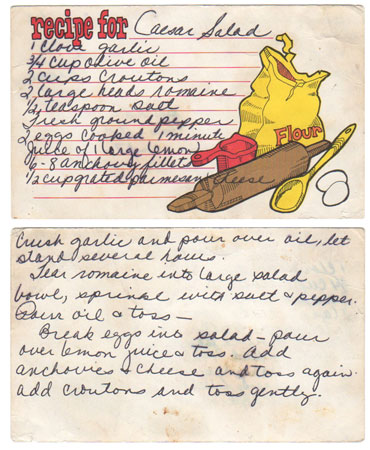 recipe for Caesar Salad
1 clove garlic
3/4 cup olive oil
2 cups croutons
2 large heads romaine
1/2 teaspoon salt
Fresh ground pepper
2 eggs cooked 1 minute
Juice of 1 large lemon
6-8 anchovy fillets
1/2 cup grated parmesan cheese
Flour
Crush garlic and pour over oil, let
stand several hours.
Tear romaine into large salad
bowl, sprinkle with salt & pepper.
Pour oil & toss —
Break eggs into salad - pour
over lemon juice & toss. Add
anchovies & cheese and toss again.
add croutons and toss gently.